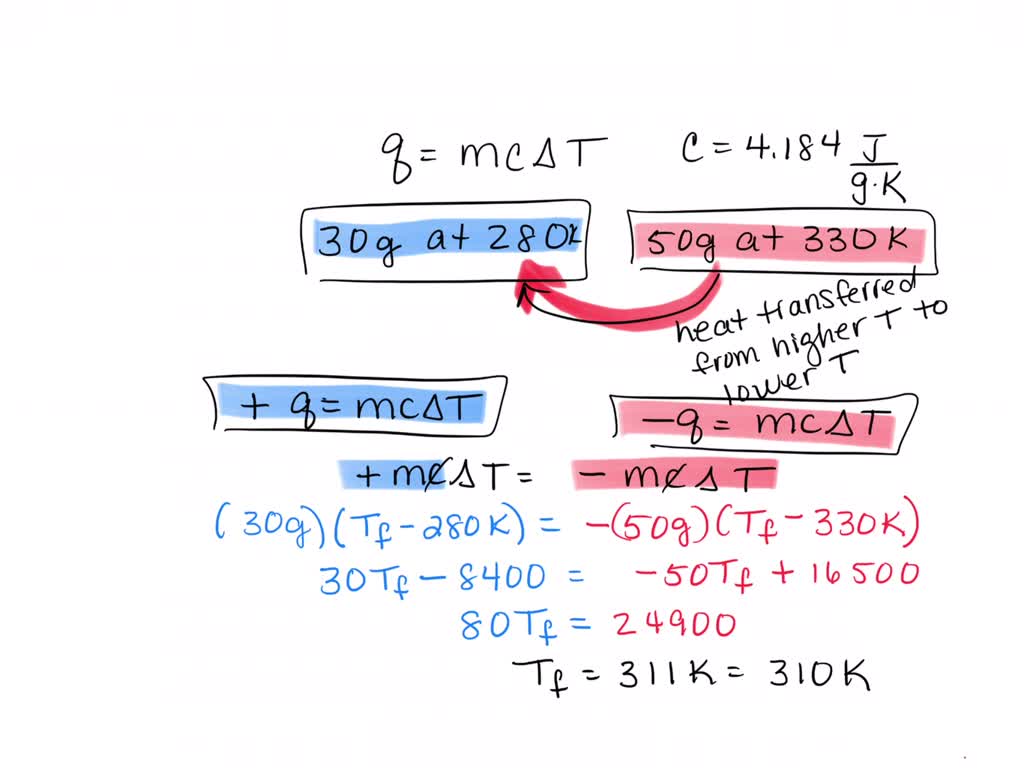 q = mcΔT
C = 4.184 J/g·K
30g at 280K
50g at 330K
heat transferred
from higher T to
lower T
+ q = mcΔT
-q = mcΔT
+mcΔT = - mcΔT
(30g)(Tf - 280K) = -(50g)(Tf - 330K)
30Tf - 8400 = -50Tf + 16500
80Tf = 24900
Tf = 311K = 310K